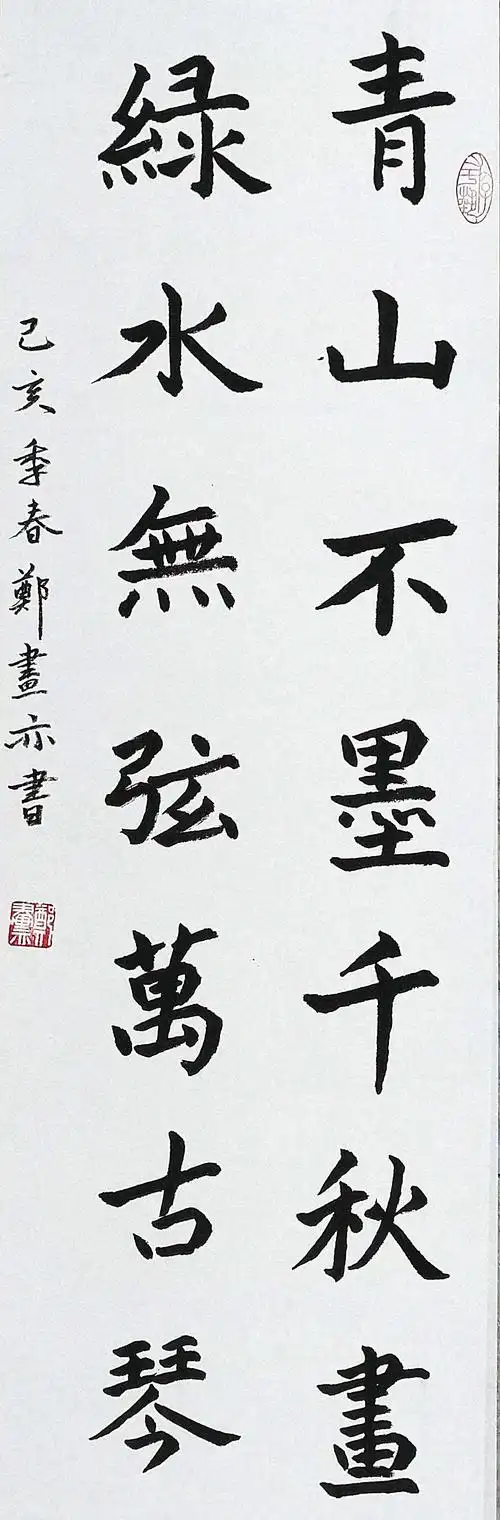 青山不墨千秋畫
綠水無弦萬古琴
己亥季春鄭畫亦書